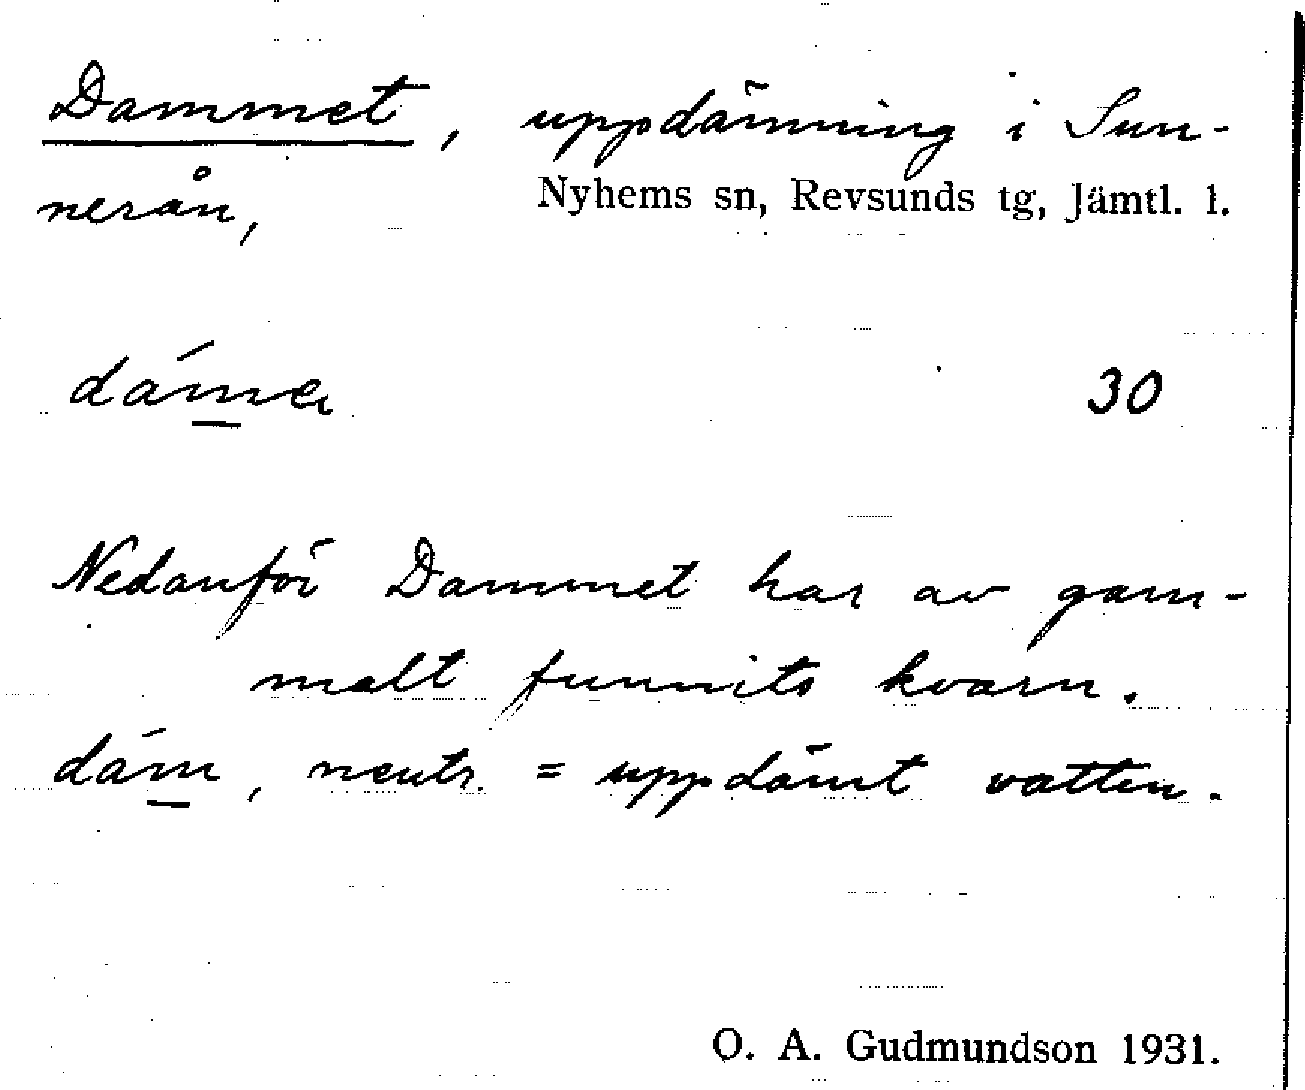 Dammet, uppdämning i Sun-
nerån,
Nyhems sn, Revsunds tg, Jämtl. l.
30
Nedanför Dammet har av gam-
malt funnits kvarn.
dám̲, neutr. = uppdämt vatten.
O. A. Gudmundson 1931.